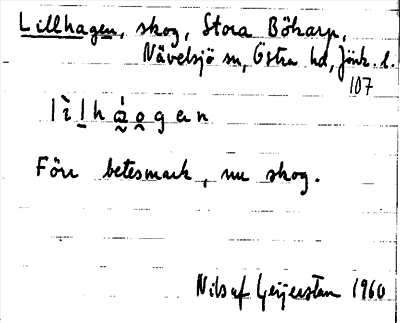 Lillhagen, skog, Stora Bökarp,
Nävelsjö sn, Östra hd, Jönk. l.
107
lìl̲há̰o̭gen
Förr betesmark, nu skog.
Nils af Geijerstam 1960